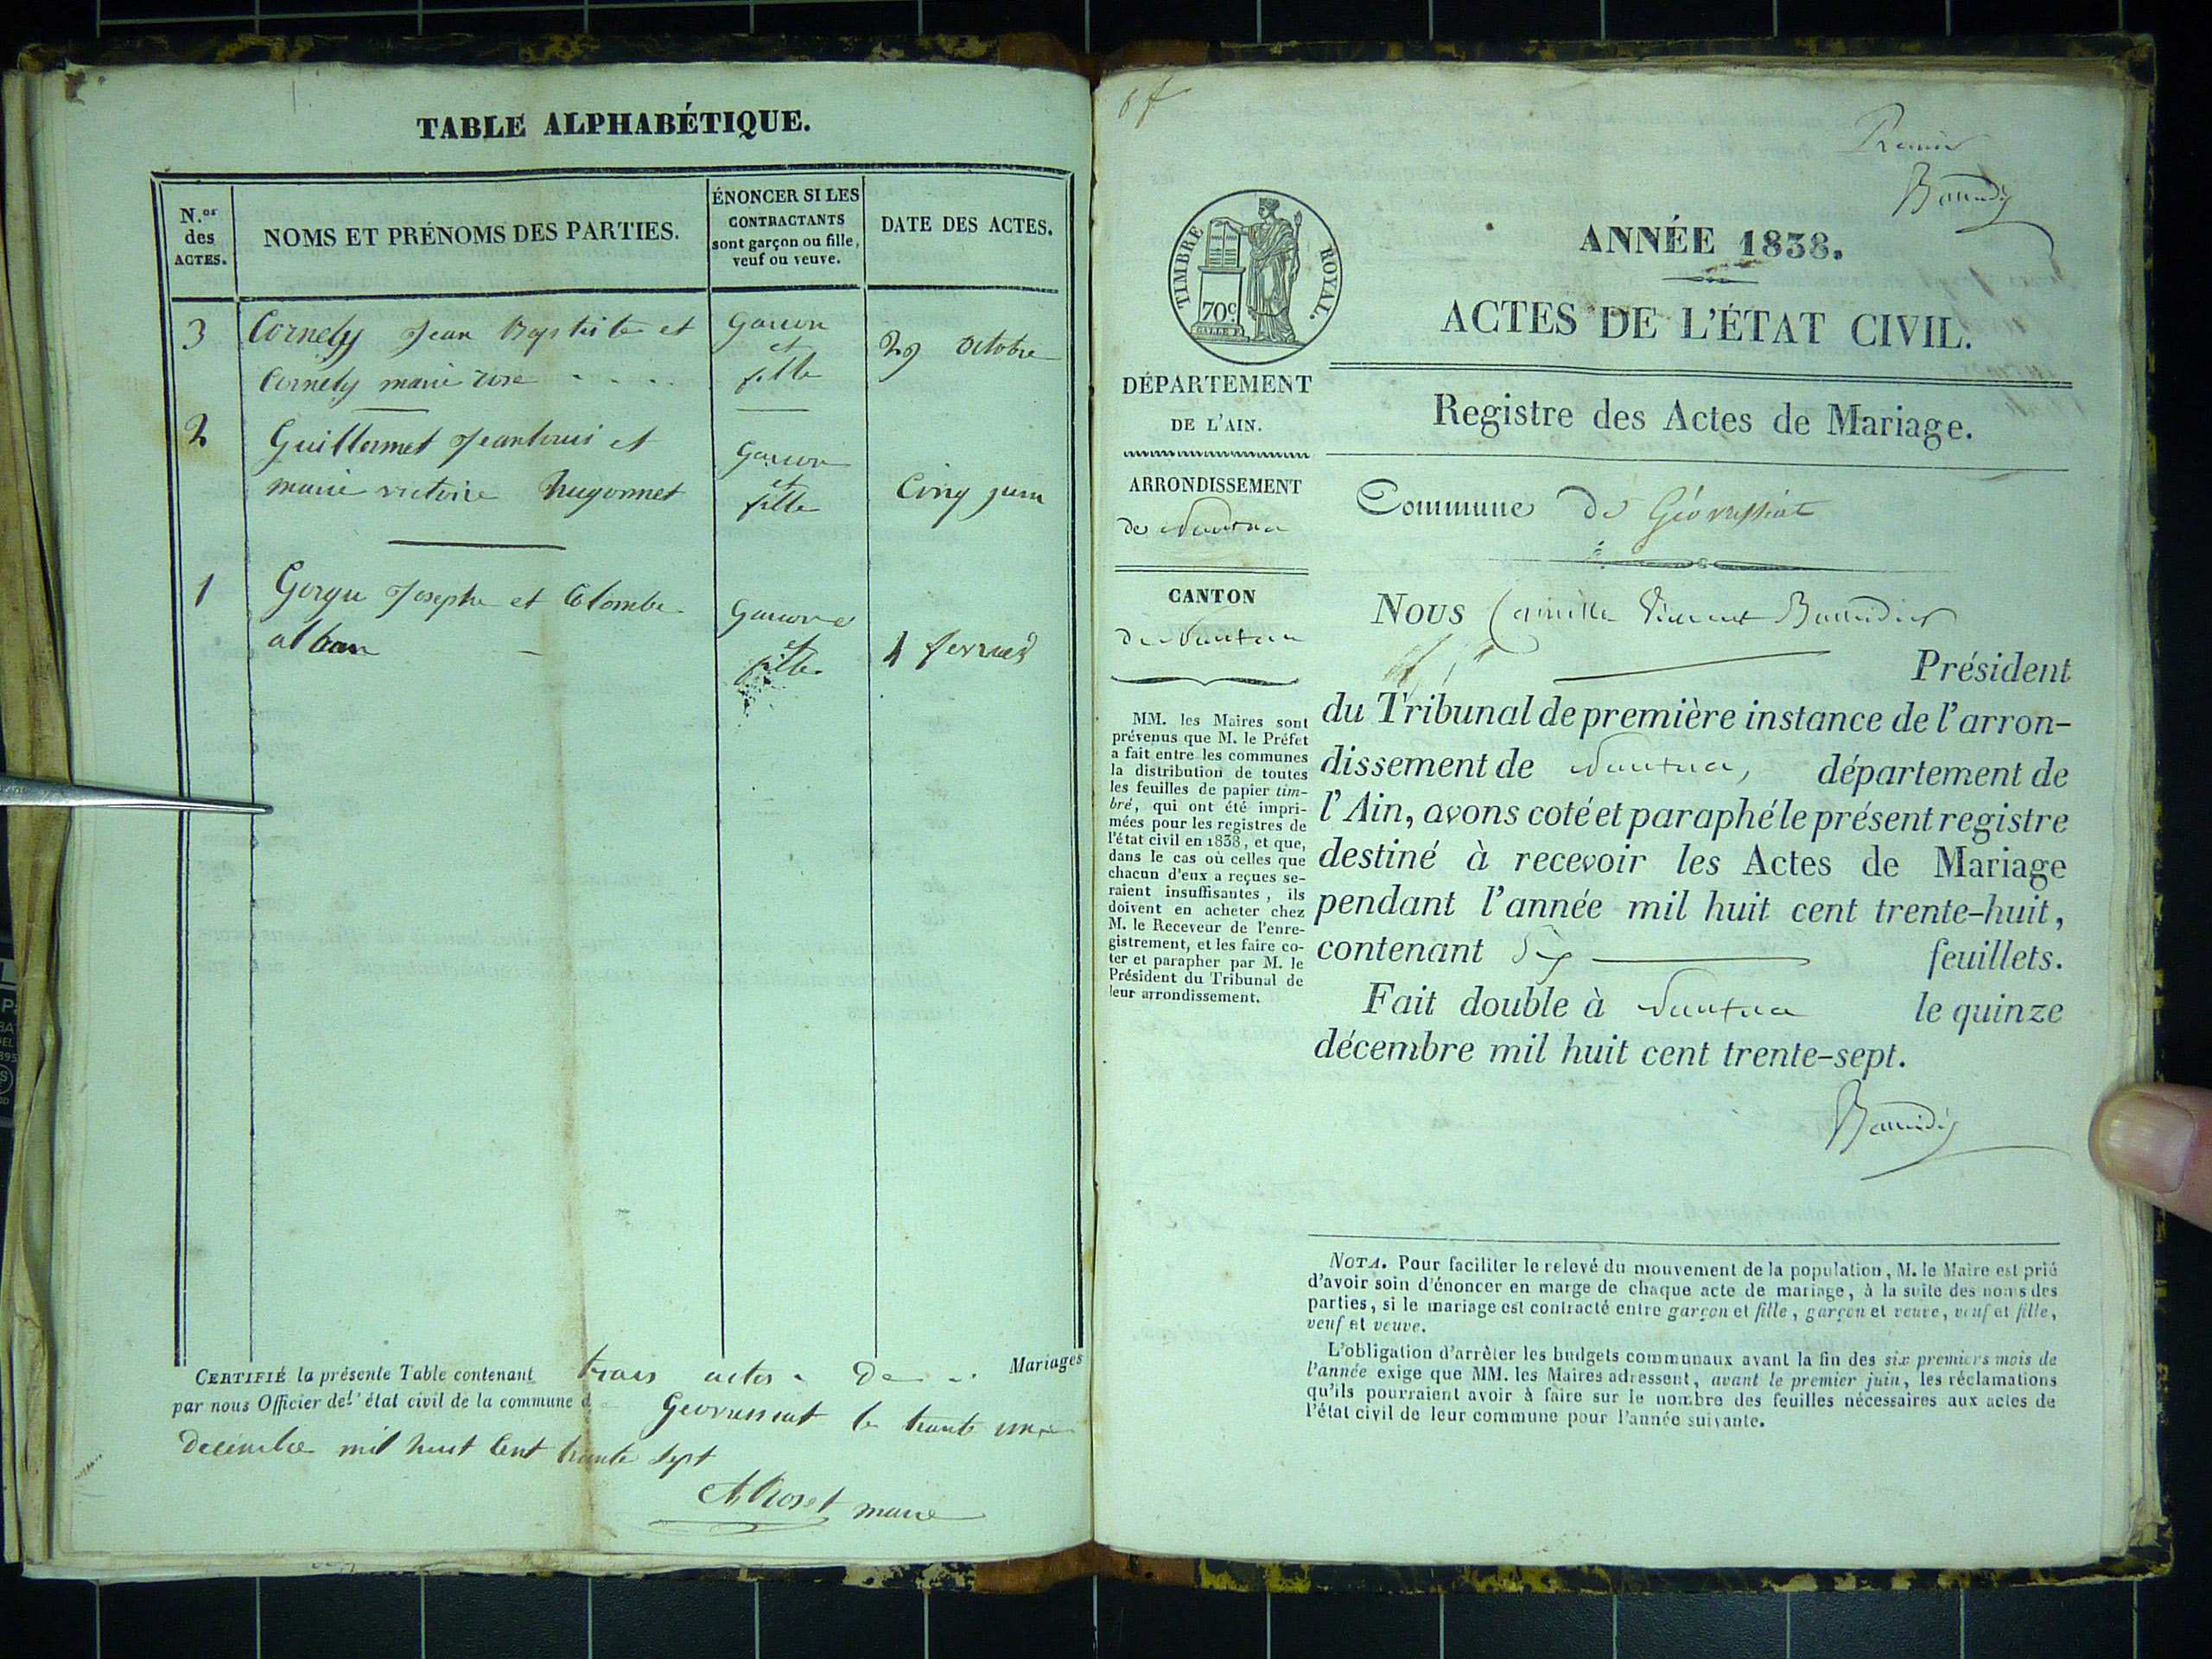 TABLE ALPHABÉTIQUE.
N.os
des
ACTES.
NOMS ET PRÉNOMS DES PARTIES.
ÉNONCER SI LES
CONTRACTANTS
sont garçon ou fille,
veuf ou veuve.
DATE DES ACTES.
3 Cornely Jean Baptiste et Garcon
et
Cornely marie rose fille
29 octobre
2 Guillermet Jeanlouis et Garcon
et
marie victoire hugonnet fille
Cinq juin
1 Gorgu Joseph et Colombe Garcon
et
alban fille
CERTIFIÉ la présente Table contenant trois actes de Mariages
par nous Officier de l'état civil de la commune de Geovressiat le trente un
decembre mil huit Cent trente sept
maire
Premier
ANNÉE 1838.
TIMBRE ROYAL.
70c
ACTES DE L'ÉTAT CIVIL.
DÉPARTEMENT
DE L'AIN.
ARRONDISSEMENT
de Nantua
CANTON
de Nantua
MM. les Maires sont
prévenus que M. le Préfet
a fait entre les communes
la distribution de toutes
les feuilles de papier tim-
bré, qui ont été impri-
mées pour les registres de
l'état civil en 1838, et que,
dans le cas où celles que
chacun d'eux a reçues se-
raient insuffisantes, ils
doivent en acheter chez
M. le Receveur de l'enre-
gistrement, et les faire co-
ter et parapher par M. le
Président du Tribunal de
leur arrondissement.
Registre des Actes de Mariage.
Commune de Géovressiat
Nous Camille Vincent
Président
du Tribunal de première instance de l'arron-
dissement de Nantua, département de
l'Ain, avons coté et paraphé le présent registre
destiné à recevoir les Actes de Mariage
pendant l'année mil huit cent trente-huit,
contenant feuillets.
Fait double à Nantua le quinze
décembre mil huit cent trente-sept.
NOTA. Pour faciliter le relevé du mouvement de la population, M. le Maire est prié
d'avoir soin d'énoncer en marge de chaque acte de mariage, à la suite des noms des
parties, si le mariage est contracté entre garçon et fille, garçon et veuve, veuf et fille,
veuf et veuve.
L'obligation d'arrêter les budgets communaux avant la fin des six premiers mois de
l'année exige que MM. les Maires adressent, avant le premier juin, les réclamations
qu'ils pourraient avoir à faire sur le nombre des feuilles nécessaires aux actes de
l'état civil de leur commune pour l'année suivante.